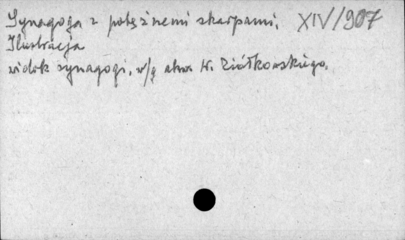 Synagoga z potężnemi skarpami. XIV/907
Ilustracja
widok synagogi, w/g akw. W. Ziółkowskiego.